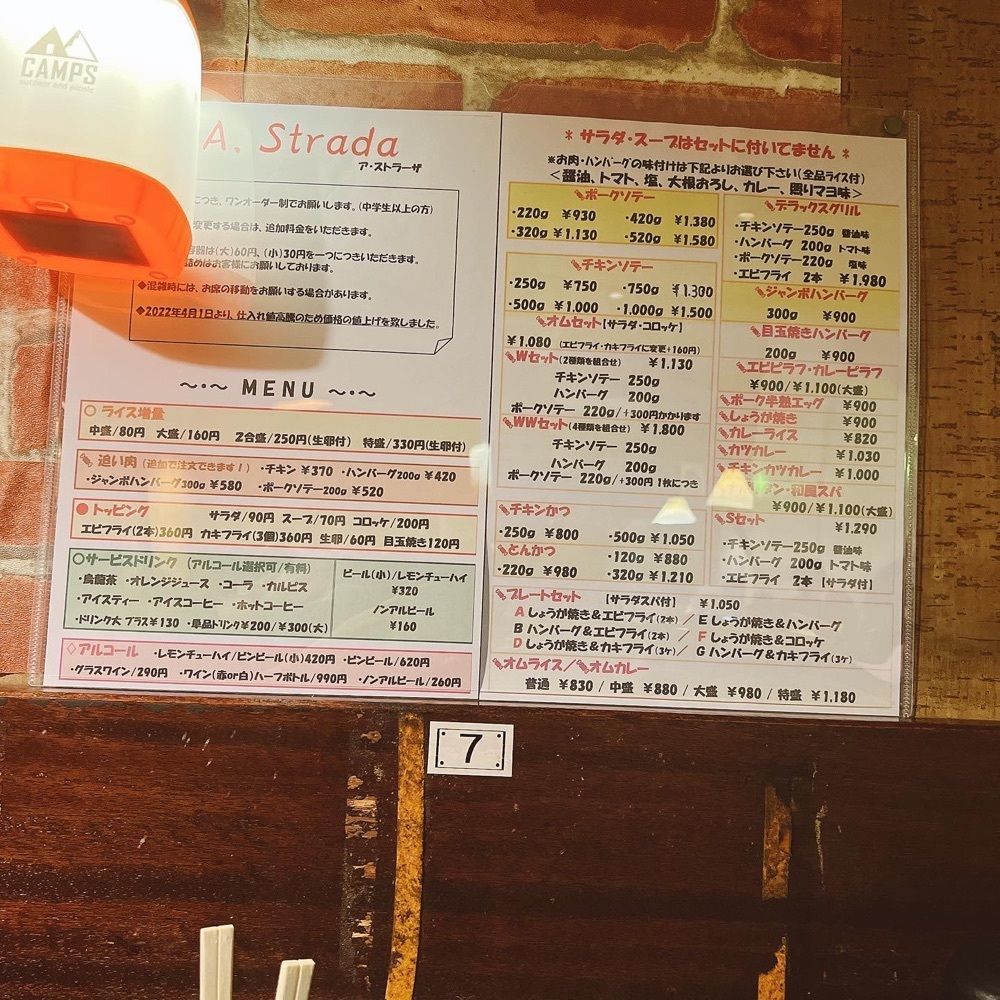 CAMPS
outdoor and picnic
A. Strada
ア・ストラーザ
につき、ワンオーダー制でお願いします。(中学生以上の方)
変更する場合は、追加料金をいただきます。
容器は(大)60円、(小)30円を一つにつきいただきます。
詰めはお客様にお願いしております。
◆混雑時には、お席の移動をお願いする場合があります。
◆2022年4月1日より、仕入れ値高騰のため価格の値上げを致しました。
～・～ MENU ～・～
○ ライス増量
中盛/80円 大盛/160円 2合盛/250円(生卵付) 特盛/330円(生卵付)
追い肉 (追加で注文できます!) ・チキン ¥370 ・ハンバーグ200g ¥420
・ジャンボハンバーグ300g ¥580 ・ポークソテー200g ¥520
●トッピング サラダ/90円 スープ/70円 コロッケ/200円
エビフライ(2本)360円 カキフライ(3個)360円 生卵/60円 目玉焼き120円
○サービスドリンク (アルコール選択可/有料)
・烏龍茶 ・オレンジジュース ・コーラ ・カルピス
・アイスティー ・アイスコーヒー ・ホットコーヒー
・ドリンク大 プラス¥130 ・単品ドリンク¥200/¥300(大)
ビール(小)/レモンチューハイ
¥320
ノンアルビール
¥160
◇アルコール ・レモンチューハイ/ビンビール(小)420円 ・ビンビール/620円
・グラスワイン/290円 ・ワイン(赤or白)ハーフボトル/990円 ・ノンアルビール/260円
* サラダ・スープはセットに付いてません *
※お肉・ハンバーグの味付けは下記よりお選び下さい(全品ライス付)
<醤油、トマト、塩、大根おろし、カレー、照りマヨ味>
ポークソテー
・220g ¥930 ・420g ¥1.380
・320g ¥1.130 ・520g ¥1.580
チキンソテー
・250g ¥750 ・750g ¥1.300
・500g ¥1.000 ・1.000g ¥1.500
オムセット【サラダ・コロッケ】
¥1.080 (エビフライ・カキフライに変更+160円)
Wセット(2種類を組合せ) ¥1.130
チキンソテー 250g
ハンバーグ 200g
ポークソテー 220g/+300円かかります
WWセット(4種類を組合せ) ¥1.800
チキンソテー 250g
ハンバーグ 200g
ポークソテー 220g/+300円 1枚につき
チキンかつ
・250g ¥800 ・500g ¥1.050
とんかつ ・120g ¥880
・220g ¥980 ・320g ¥1.210
デラックスグリル
・チキンソテー250g 醤油味
・ハンバーグ 200g トマト味
・ポークソテー220g 塩味
・エビフライ 2本 ¥1.980
ジャンボハンバーグ
300g ¥900
目玉焼きハンバーグ
200g ¥900
エビピラフ・カレーピラフ
¥900/¥1.100(大盛)
ポーク半熟エッグ ¥900
しょうが焼き ¥900
カレーライス ¥820
カツカレー ¥1.030
チキンカツカレー ¥1.000
ン・和風スパ
¥900/¥1.100(大盛)
Sセット ¥1.290
・チキンソテー250g 醤油味
・ハンバーグ 200g トマト味
・エビフライ 2本 【サラダ付】
プレートセット 【サラダスパ付】 ¥1.050
Aしょうが焼き&エビフライ(2本) / Eしょうが焼き&ハンバーグ
Bハンバーグ&エビフライ(2本) / Fしょうが焼き&コロッケ
Dしょうが焼き&カキフライ(3ケ) / Gハンバーグ&カキフライ(3ケ)
オムライス/オムカレー
普通 ¥830 / 中盛 ¥880 / 大盛 ¥980 / 特盛 ¥1.180
7